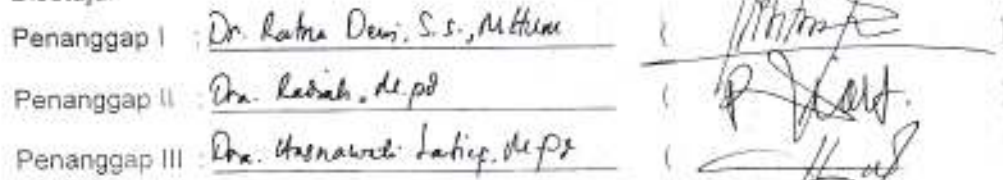 Penanggap I : Dr. Ratna Dewi, S.S., M.Hum
Penanggap II : Dra. Radiah, M.Pd
Penanggap III : Dra. Hasnawati Latief, M.Pd